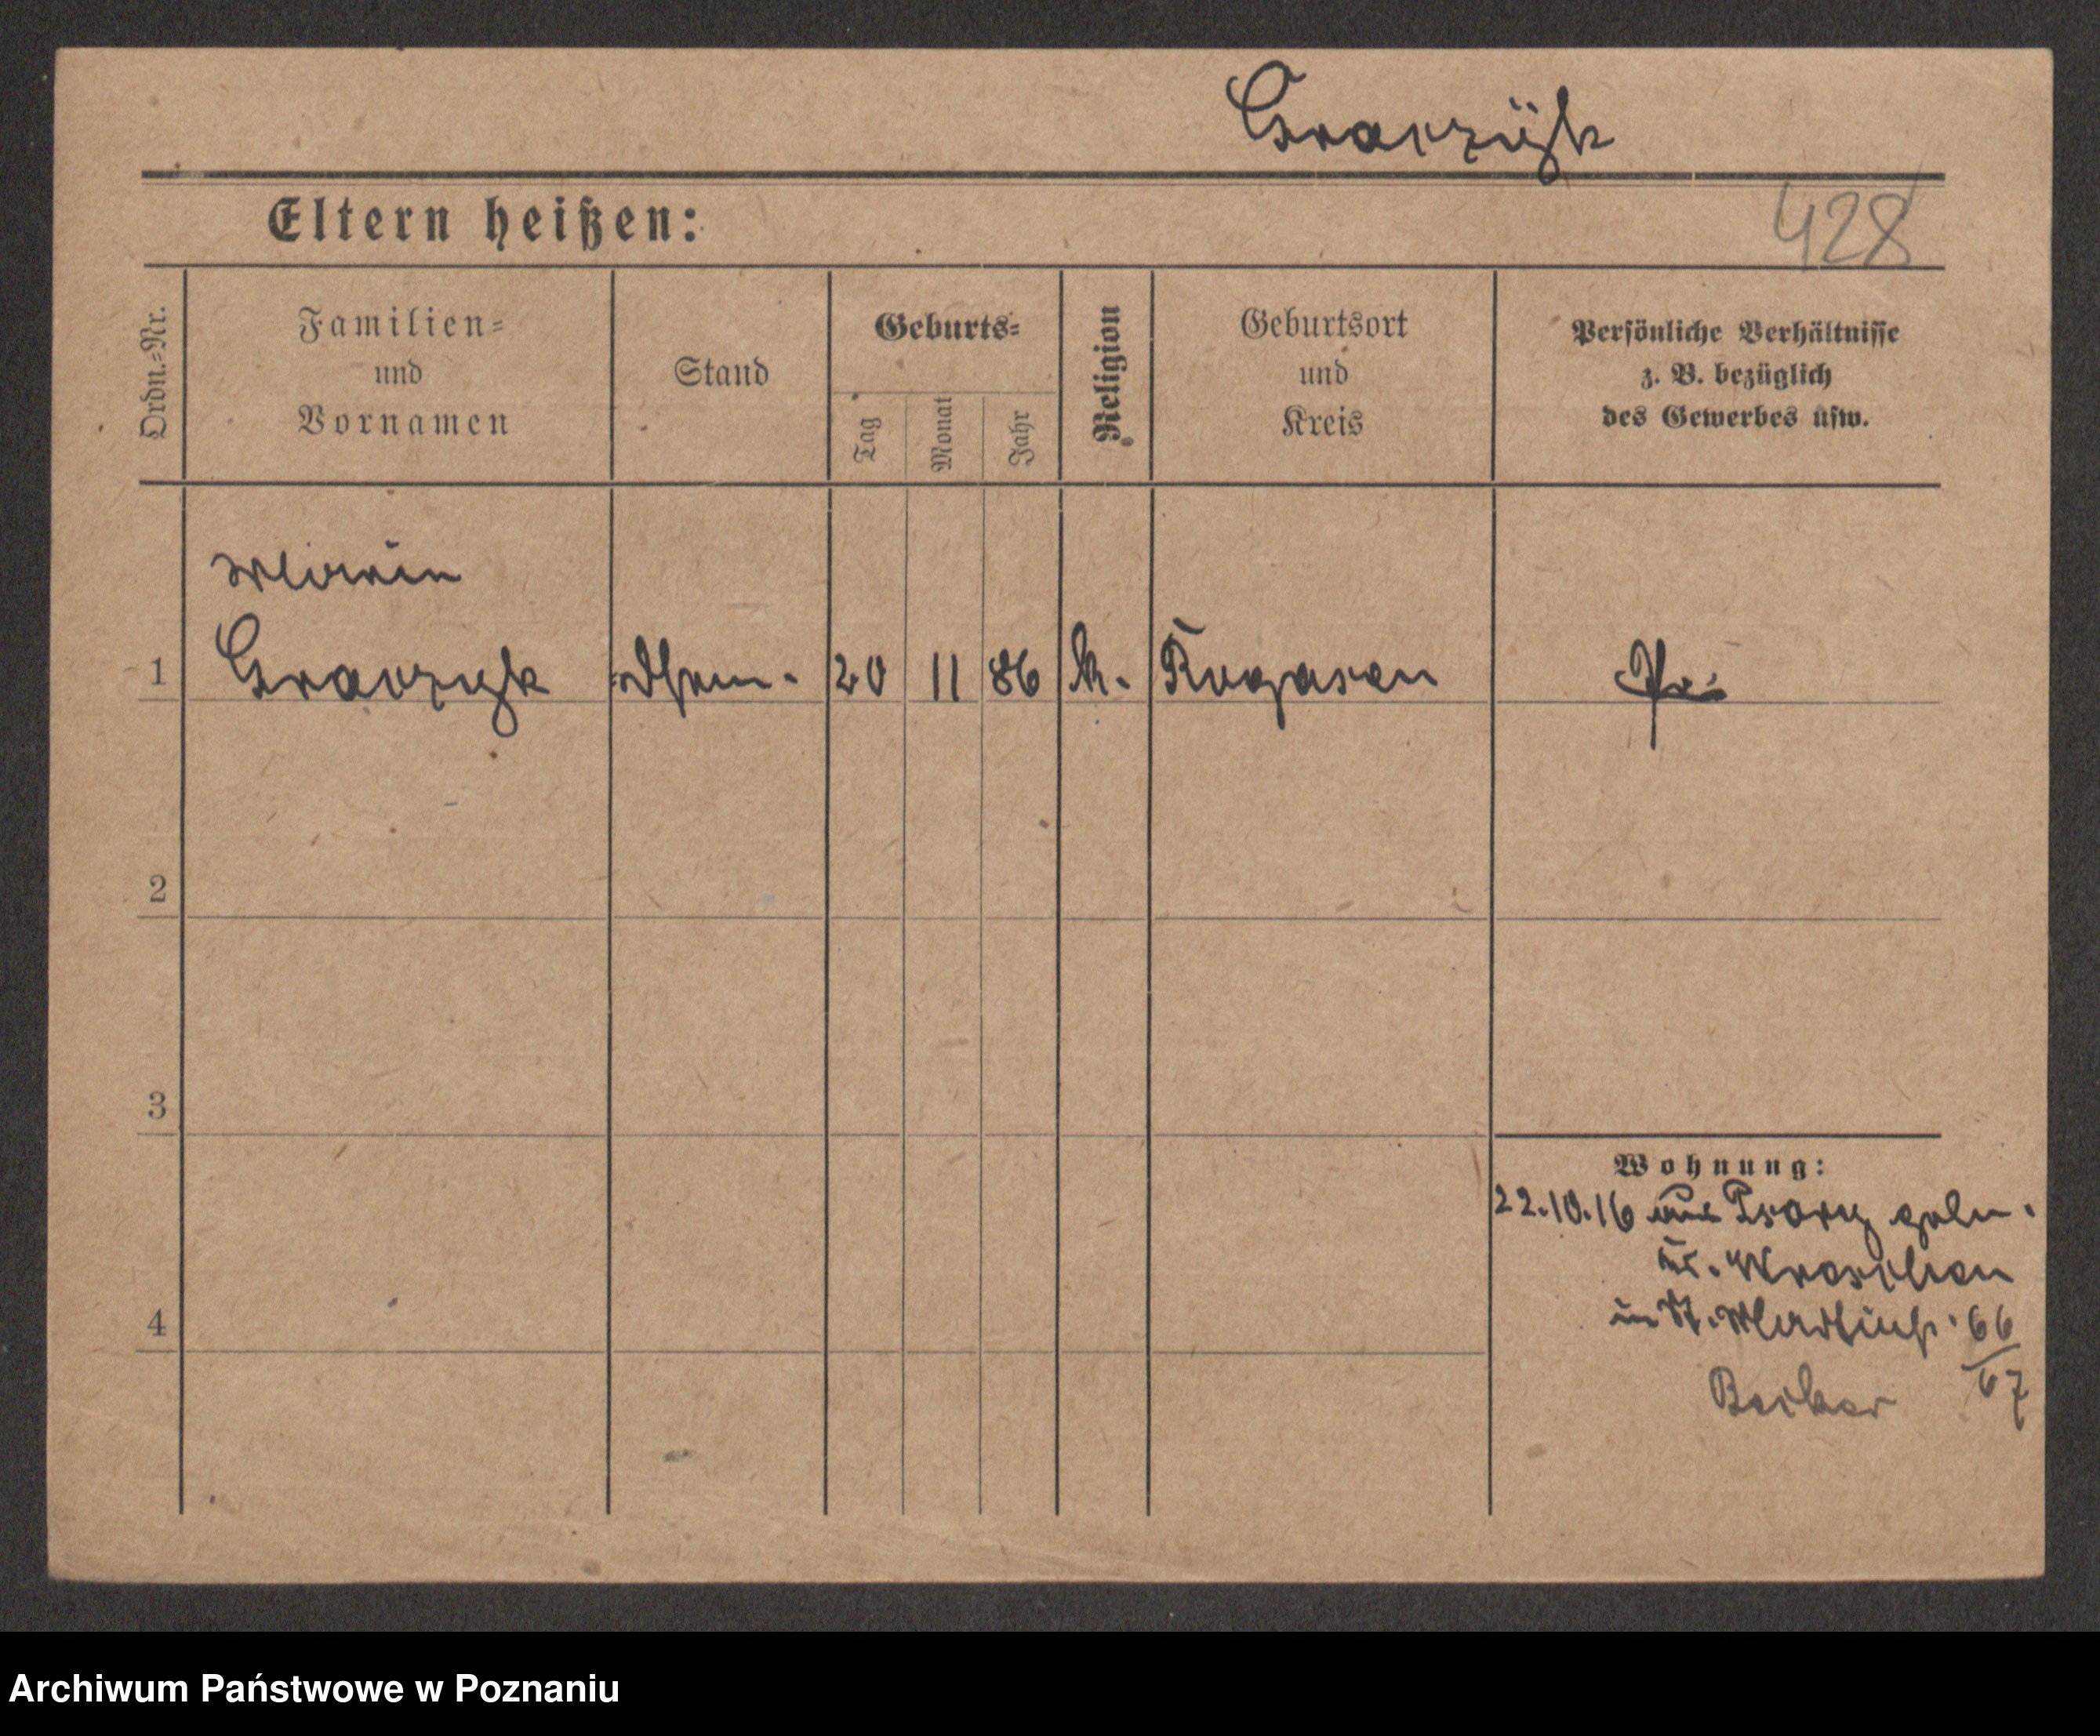 Graczyk
Eltern heißen:
428
Ordn.-Nr.
Familien-
und
Vornamen
Stand
Geburts-
Tag
Monat
Jahr
Religion
Geburtsort
und
Kreis
Persönliche Verhältnisse
z. B. bezüglich
des Gewerbes usw.
1
Graczyk
20 11 86 k. Rogasen
Pr.
2
3
4
Wohnung:
22.10.16 aus
Kr. Wreschen
in St. Martinstr. 66
/67
Becker
Archiwum Państwowe w Poznaniu